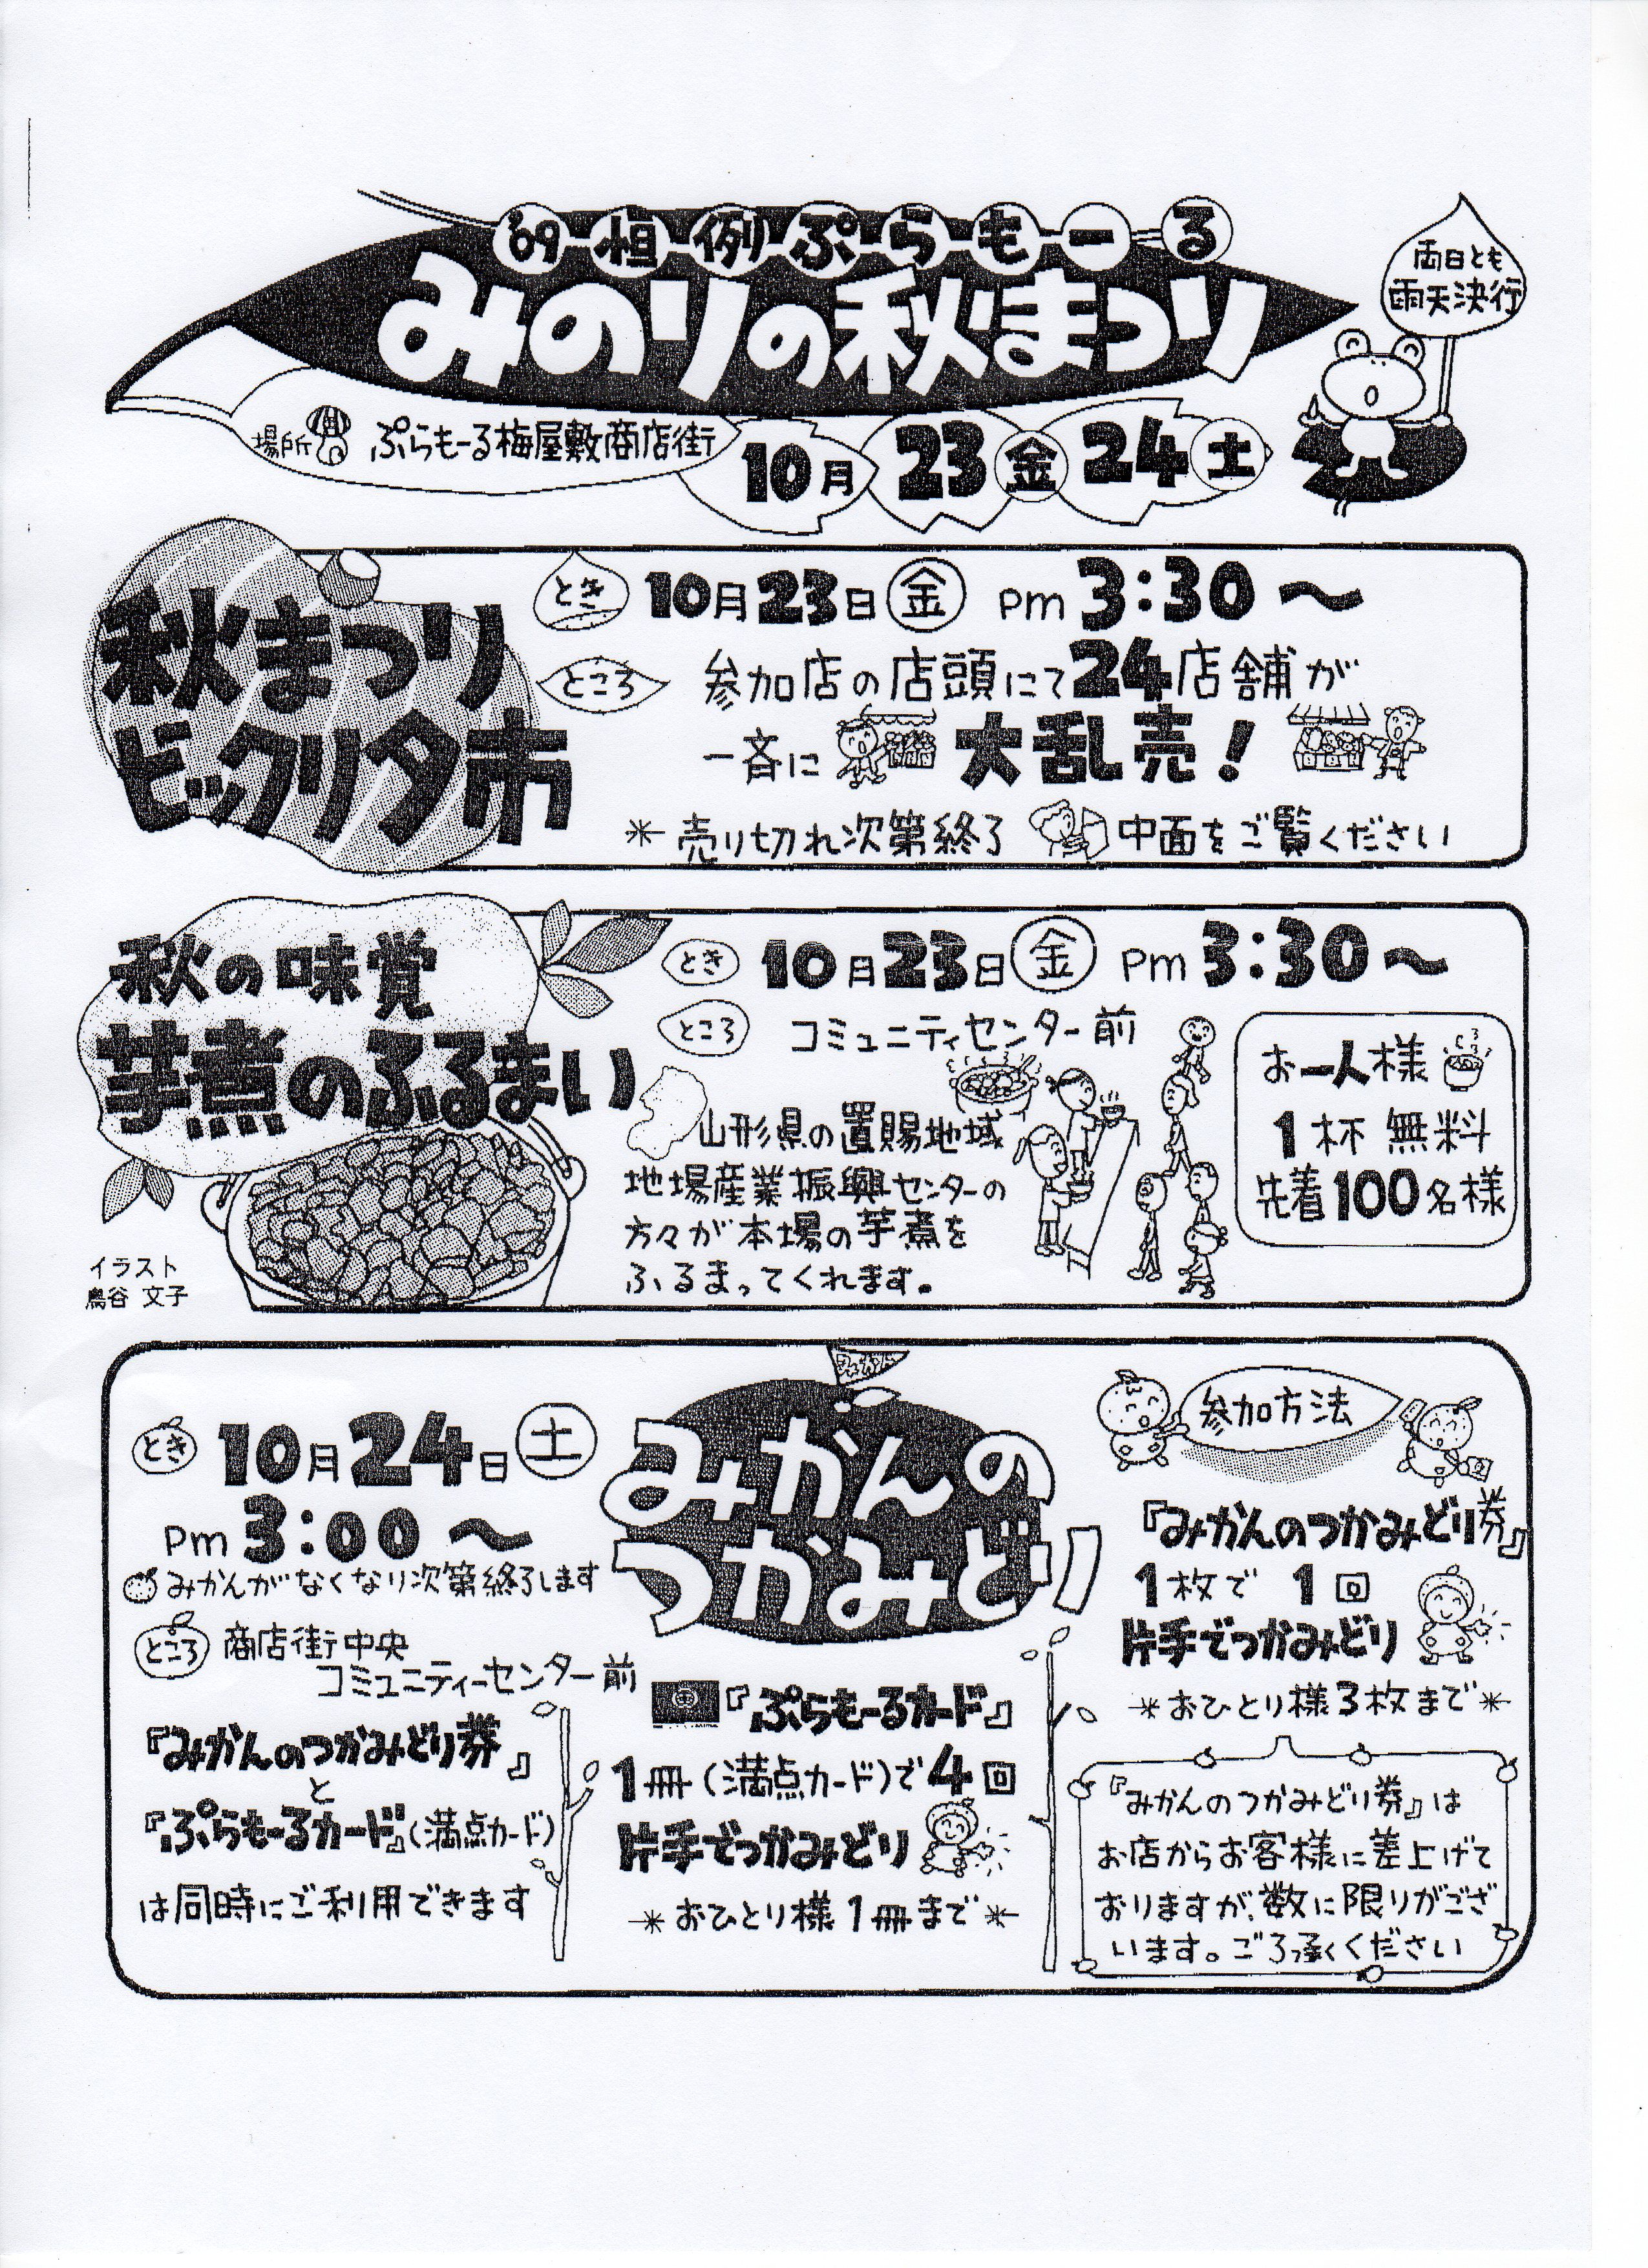 '09恒例ぷらもーる
みのりの秋まつり
両日とも
雨天決行
場所 ぷらもーる梅屋敷商店街
10月 23金 24土
秋まつり
ビックリ夕市
とき 10月23日金 pm 3:30〜
ところ 参加店の店頭にて24店舗が
一斉に 大乱売!
*売り切れ次第終了 中面をご覧ください
秋の味覚
芋煮のふるまい
とき 10月23日金 pm 3:30〜
ところ コミュニティセンター前
山形県の置賜地域
地場産業振興センターの
方々が本場の芋煮を
ふるまってくれます。
お一人様
1杯 無料
先着100名様
イラスト
鳥谷 文子
とき 10月24日土
pm 3:00〜
みかんがなくなり次第終了します
ところ 商店街中央
コミュニティーセンター前
『みかんのつかみどり券』
と
『ぷらもーるカード』(満点カード)
は同時にご利用できます
みかん
みかんの
つかみどり
『ぷらもーるカード』
1冊(満点カード)で4回
片手でつかみどり
*おひとり様1冊まで*
参加方法
『みかんのつかみどり券』
1枚で 1回
片手でつかみどり
*おひとり様3枚まで*
『みかんのつかみどり券』は
お店からお客様に差上げて
おりますが、数に限りがござ
います。ご了承ください